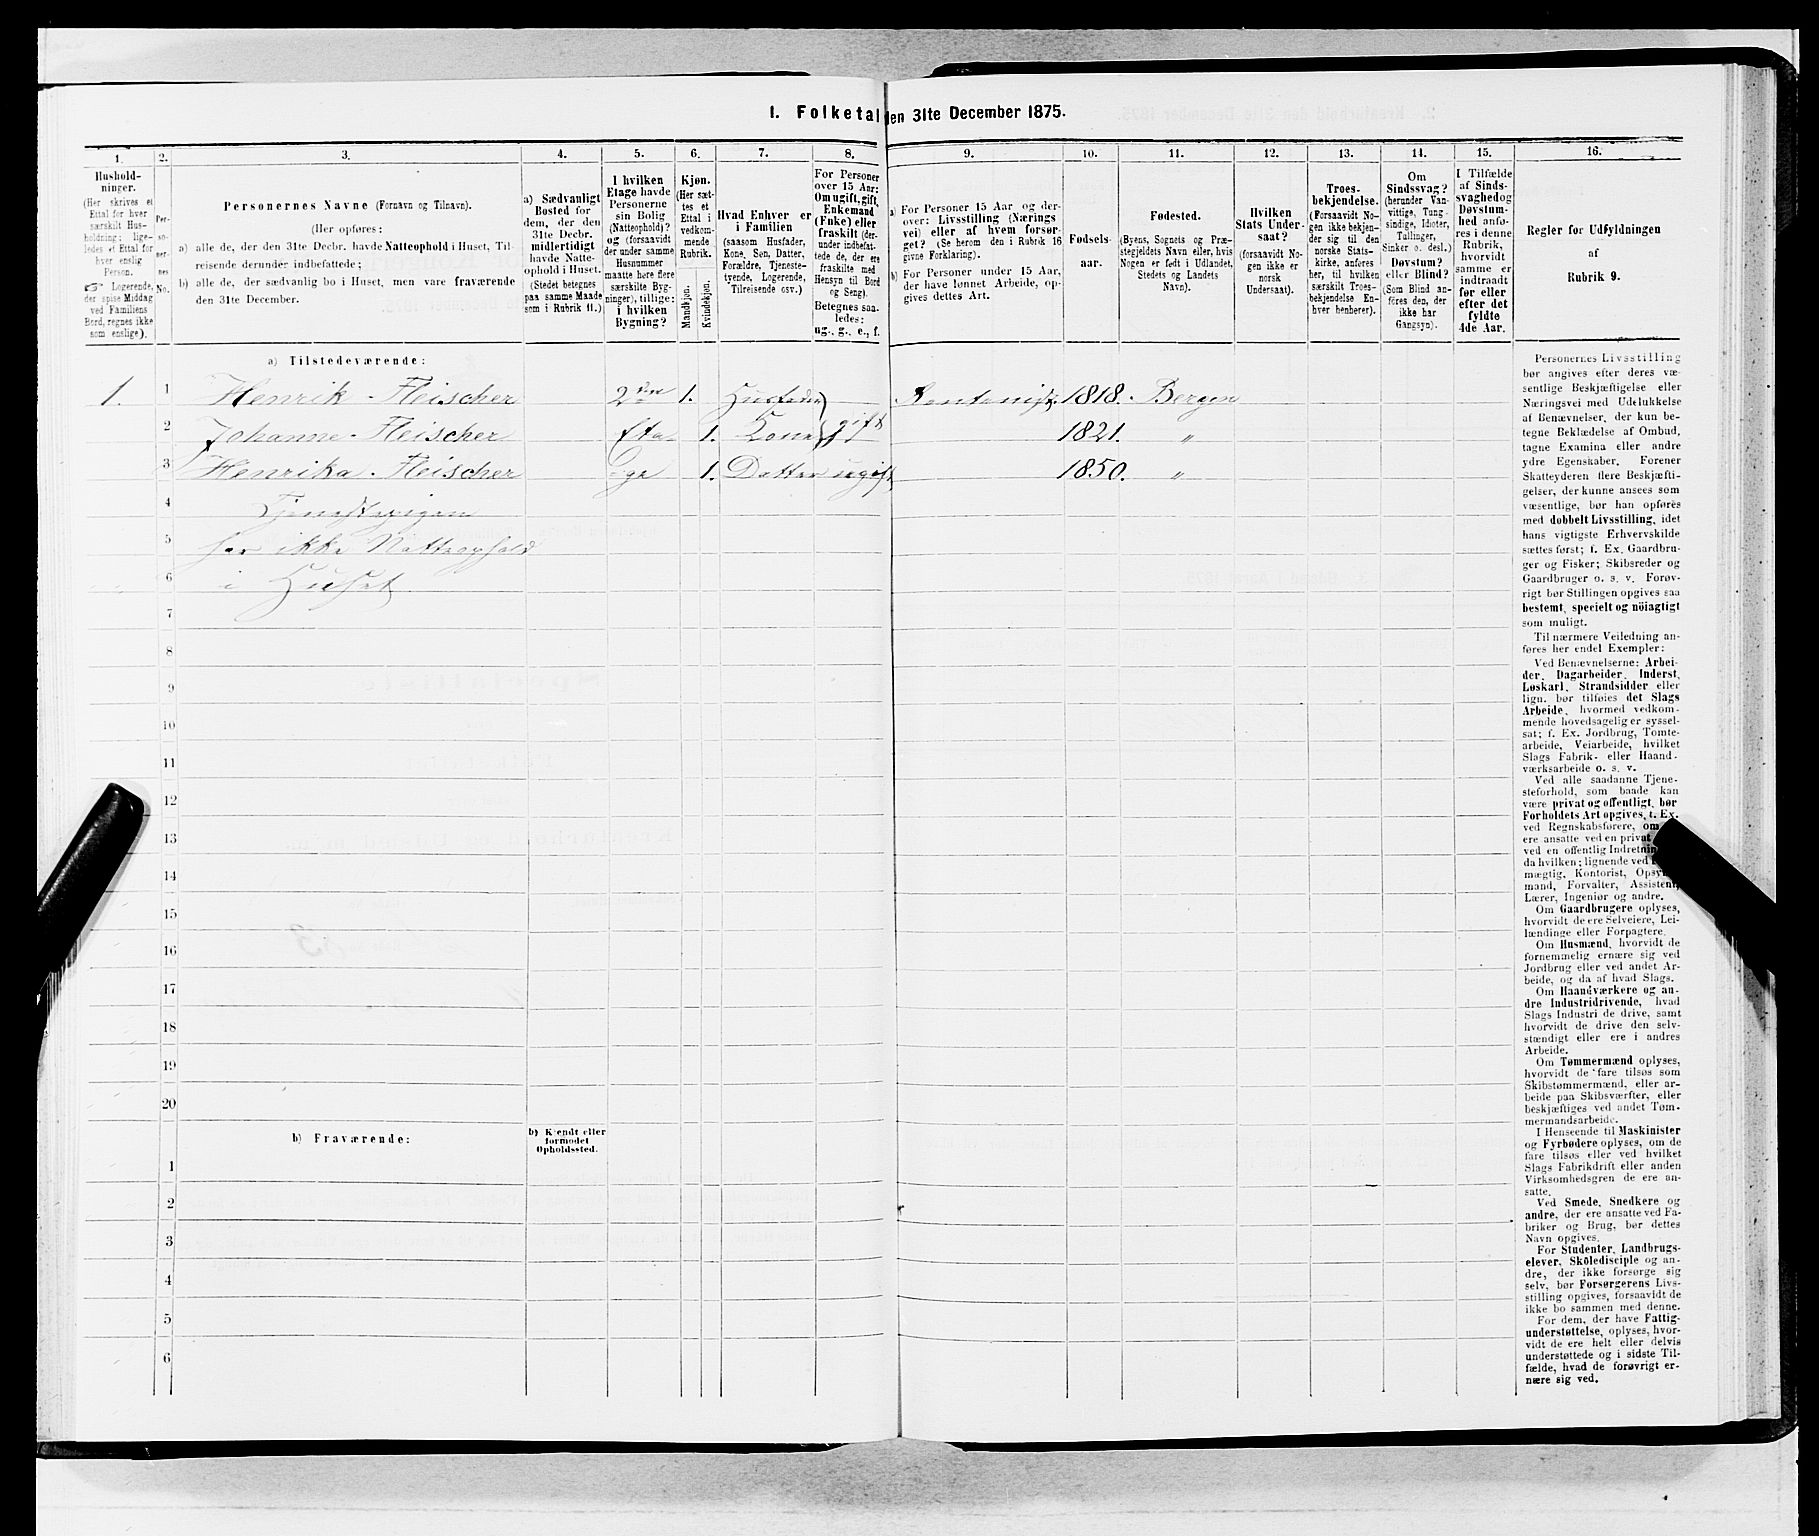 1. Folketal den 31te December 1875.
1.
Hushold-
ninger.
(Her skrives et
Ettal for hver
særskilt Hus-
holdning; lige-
ledes et Ettal for
hver enslig
Person.
☞ Logerende,
der spise Middag
ved Familiens
Bord, regnes ikke
som enslige).
2.
Per-
so-
ner-
nes
No.
3.
Personernes Navne (Fornavn og Tilnavn).
(Her opføres:
a) alle de, der den 31te Decbr. havde Natteophold i Huset, Til-
reisende derunder indbefattede;
b) alle de, der sædvanlig bo i Huset, men vare fraværende
den 31te December.
4.
a) Sædvanligt
Bosted for
dem, der den
31te Decbr.
midlertidigt
havde Natte-
ophold i Huset.
(Stedet betegnes
paa samme Maade
som i Rubrik 11.)
5.
I hvilken
Etage havde
Personerne
sin Bolig
(Natteophold)?
og (forsaavidt
der under samme
Husnummer
maatte høre flere
særskilte Byg-
ninger), tillige:
i hvilken
Bygning?
6.
Kjøn.
(Her sæt-
tes et
Ettal i
vedkom-
mende
Rubrik.
Mandkjøn.
Kvindekjøn.
7.
Hvad Enhver er
i Familien
(saasom Husfader,
Kone, Søn, Datter,
Forældre, Tjeneste-
tyende, Logerende,
Tilreisende osv.)
8.
For Personer
over 15 Aar:
Om ugift, gift,
Enkemand
(Enke) eller
fraskilt (der-
under indbefat-
tede de, der ere
fraskilte med
Hensyn til Bord
og Seng).
Betegnes saa-
ledes:
ug., g., e., f.
9.
a) For Personer 15 Aar og der-
over: Livsstilling (Nærings
vei) eller af hvem forsør-
get? (Se herom den i Rubrik 16
givne Forklaring).
b) For Personer under 15 Aar,
der have lønnet Arbeide, op-
gives dettes Art.
10.
Fødsels-
aar.
11.
Fødested.
(Byens, Sognets og Præ-
stegjeldets Navn eller, hvis
Nogen er født i Udlandet,
Stedets og Landets
Navn).
12.
Hvilken
Stats Under-
saat?
(forsaavidt No-
gen ikke er
norsk
Undersaat).
13.
Troes-
bekjendelse.
(Forsaavidt No-
gen ikke bekjen-
der sig til den
norske Stats-
kirke, anføres
her, til hvilken
særskilt Troes-
bekjendelse En-
hver henhører).
14.
Om
Sindssvag?
(herunder Van-
vittige, Tung-
sindige, Idioter,
Tullinger,
Sinker o. desl.)
Døvstum?
eller Blind?
(Som Blind an-
føres den, der
ikke har
Gangsyn).
15.
I Tilfælde
af Sinds-
svaghed og
Døvstum-
hed anfø-
res i denne
Rubrik,
hvorvidt
samme er
indtraadt
før eller
efter det
fyldte
4de Aar.
16.
Regler for Udfyldningen
af
Rubrik 9.
a) Tilstedeværende:
1. 1 Henrik Fleischer 2den 1. Husfader Rentenist 1818. Bergen
2 Johanne Fleischer Eta 1. Kone gift 1821. "
3 Henrika Fleischer ge 1. Datter ugift 1850. "
4 Tjenestepigen
5 har ikke Natteophold
6 i Huset
7
8
9
10
11
12
13
14
15
16
17
18
19
20
b) Fraværende:
b) Kjendt eller
formodet
Opholdssted.
1
2
3
4
5
6
Personernes Livsstilling
bør angives efter deres væ-
sentlige Beskjæftigelse eller
Næringsvei med Udelukkelse
af Benævnelser, der kun be-
tegne Beklædelse af Ombud,
tagne Examina eller andre
ydre Egenskaber. Forener
Skatteyderen flere Beskjæfti-
gelser, der kunne ansees som
væsentlige, bør han opføres
med dobbelt Livsstilling, idet
hans vigtigste Erhvervskilde
sættes først; f. Ex. Gaardbru-
ger og Fisker; Skibsreder og
Gaardbruger o. s. v. Forøv-
rigt bør Stillingen opgives saa
bestemt, specielt og nöiagtigt
som muligt.
Til nærmere Veiledning an-
føres her endel Exempler:
Ved Benævnelserne: Arbei-
der, Dagarbeider, Inderst,
Løskarl, Strandsidder eller
lign. bør tilføies det Slags
Arbeide, hvormed vedkom-
mende hovedsagelig er syssel-
sat; f. Ex. Jordbrug, Tomte-
arbeide, Veiarbeide, hvilket
Slags Fabrik- eller Haand-
værksarbeide o. s. v.
Ved alle saadanne Tjene-
steforhold, som baade kan
være privat og offentligt, bør
Forholdets Art opgives, t. Ex.
ved Regnskabsførere, om
ere ansatte ved en privat
ved en offentlig Indretnin
da hvilken; lignende ved
mægtig, Kontorist, Opsy
mand, Forvalter, Assistent,
Lærer, Ingeniør og andre.
Om Gaardbrugere oplyses,
hvorvidt de ere Selveiere, Lei-
lændinge eller Forpagtere.
Om Husmænd, hvorvidt de
fornemmelig ernære sig ved
Jordbrug eller ved andet Ar-
beide, og da af hvad Slags.
Om Haandværkere og an-
dre Industridrivende, hvad
Slags Industri de drive, samt
hvorvidt de drive den selv-
stændigt eller ere i andres
Arbeide.
Om Tømmermænd oplyses,
hvorvidt de fare tilsøs som
Skibstømmermænd, eller ar-
beide paa Skibsværfter, eller
beskjæftiges ved andet Tøm-
mermandsarbeide.
I Henseende til Maskinister
og Fyrbødere oplyses, om de
fare tilsøs eller ved hvilket
Slags Fabrikdrift eller anden
Virksomhedsgren de ere an-
satte.
Ved Smede, Snedkere og
andre, der ere ansatte ved Fa-
briker og Brug, bør dettes
Navn opgives.
For Studenter, Landbrugs-
elever, Skoledisciple og an-
dre, der ikke forsørge sig
selv, bør Forsørgerens Livs-
stilling opgives, forsaavidt de
ikke bo sammen med denne.
For dem, der have Fattig-
understøttelse, oplyses, hvor-
vidt de ere helt eller delvis
understøttede og i sidste Til-
fælde, hvad de forøvrigt er-
nære sig ved.